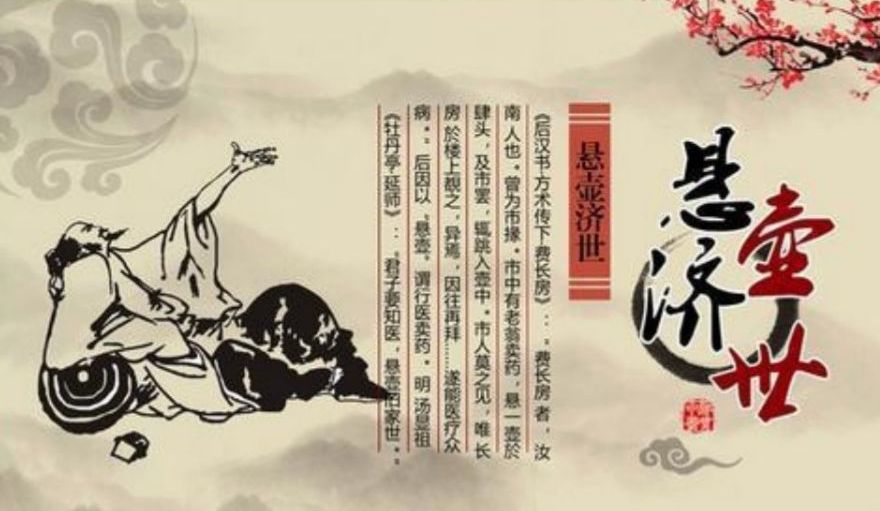 悬壶济世
悬壶济世
《后汉书·方术传下·费长房》：“费长房者，汝
南人也。曾为市掾。市中有老翁卖药，悬一壶於
肆头，及市罢，辄跳入壶中。市人莫之见，唯长
房於楼上覩之，异焉，因往再拜……遂能医疗众
病。”后因以“悬壶”谓行医卖药。明 汤显祖
《牡丹亭·延师》：“君子要知医，悬壶旧家世。”